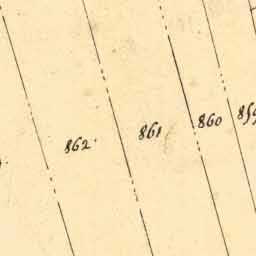 862.
861
860
859